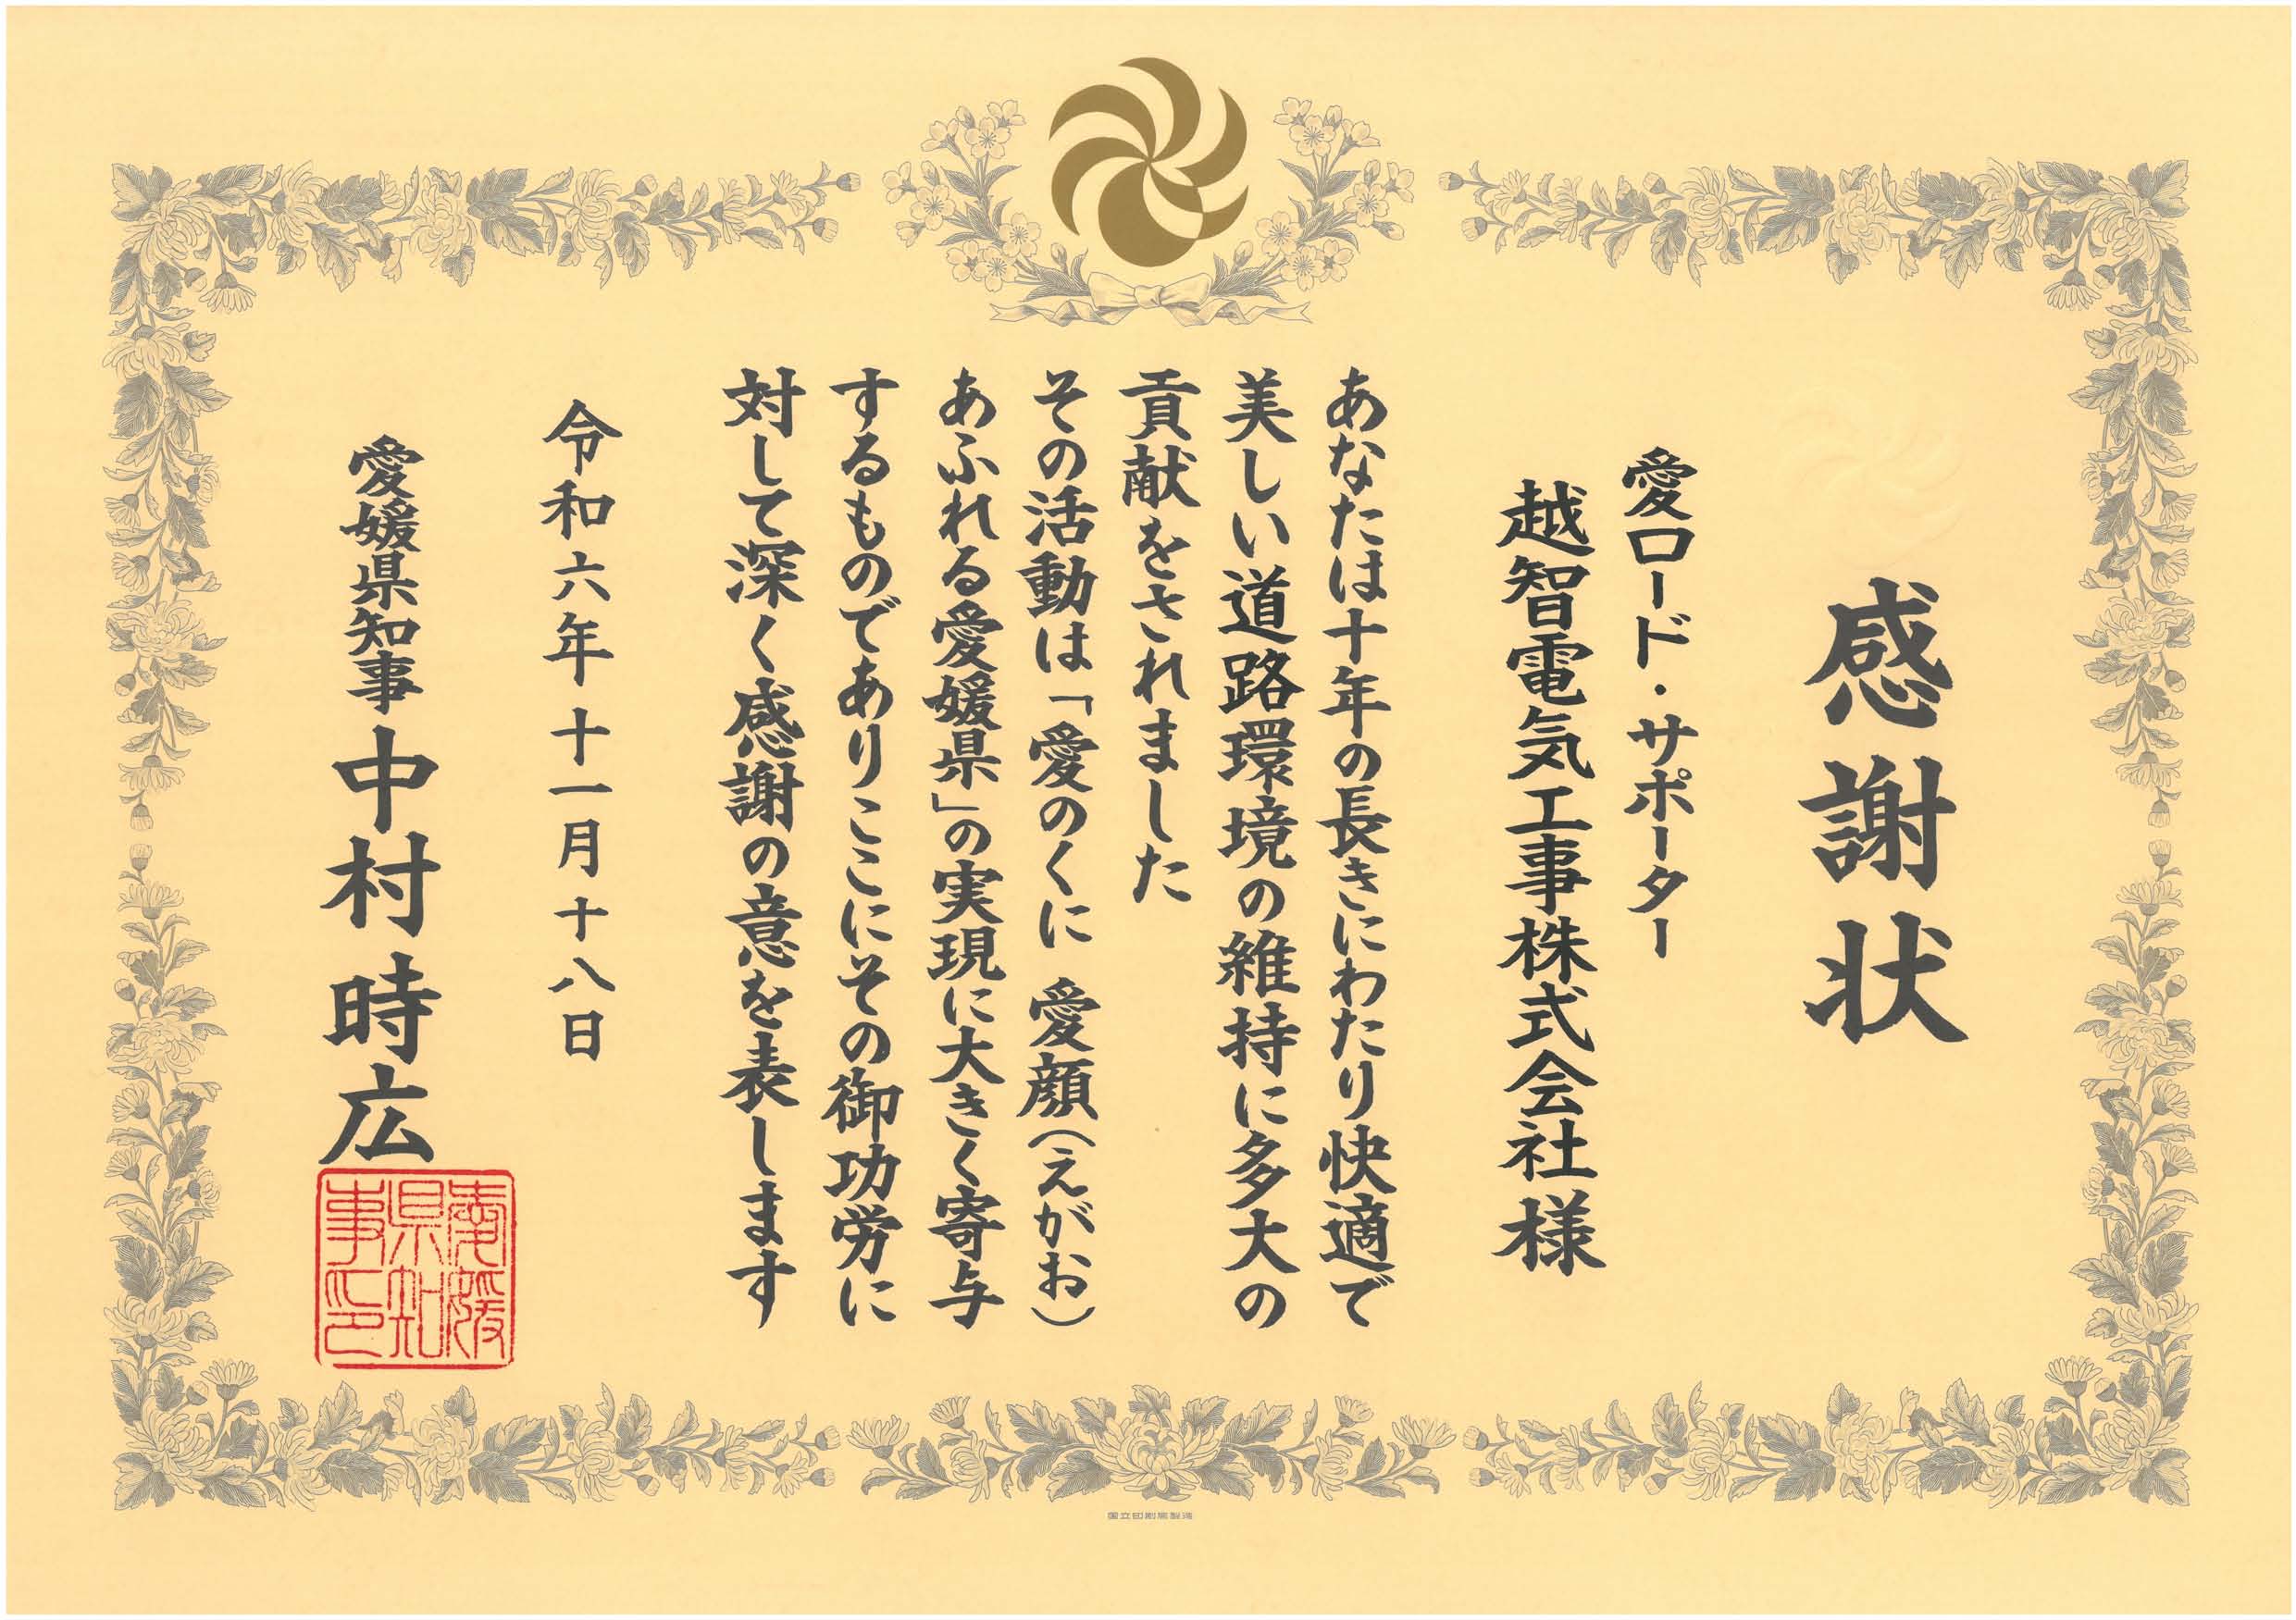 感謝状
愛ロード・サポーター
越智電気工事株式会社様
あなたは十年の長きにわたり快適で
美しい道路環境の維持に多大の
貢献をされました
その活動は「愛のくに 愛顔(えがお)
あふれる愛媛県」の実現に大きく寄与
するものでありここにその御功労に
対して深く感謝の意を表します
令和六年十一月十八日
愛媛県知事 中村時広
愛媛県知事印
国立印刷局製造